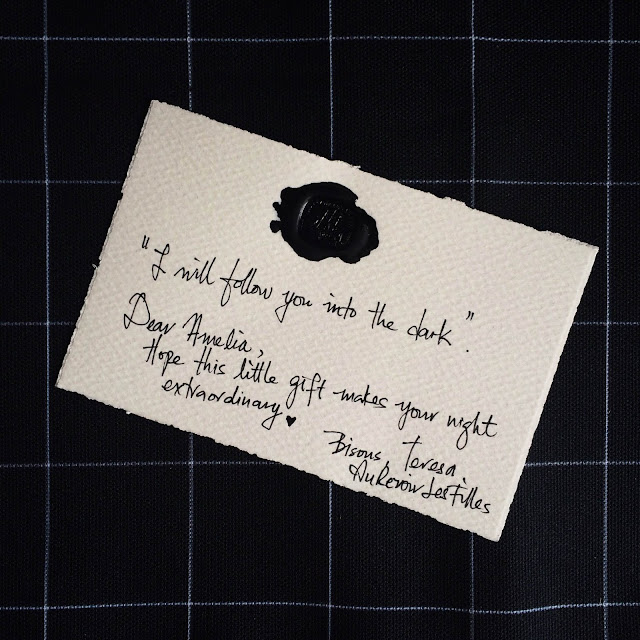 "I will follow you into the dark."
Dear Amelia,
Hope this little gift makes your night
extraordinary ♥
Bisous Teresa,
AuRevoirLesFilles